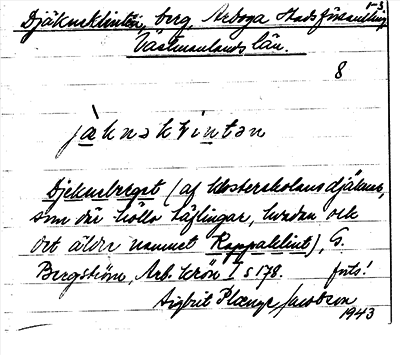 1-3.
Djäkneklinten, berg, Arboga Stadsförsamling
Västmanlands län.
8
jäknəklintən
Djekneberget (af klosterskolans djeknar,
som där höllo täflingar, hvadan ock
det äldre namnet Kappaklint), G.
Bergström, Arb. krön I s 178. forts!
Sigbrit Plænge Jacobson
1943